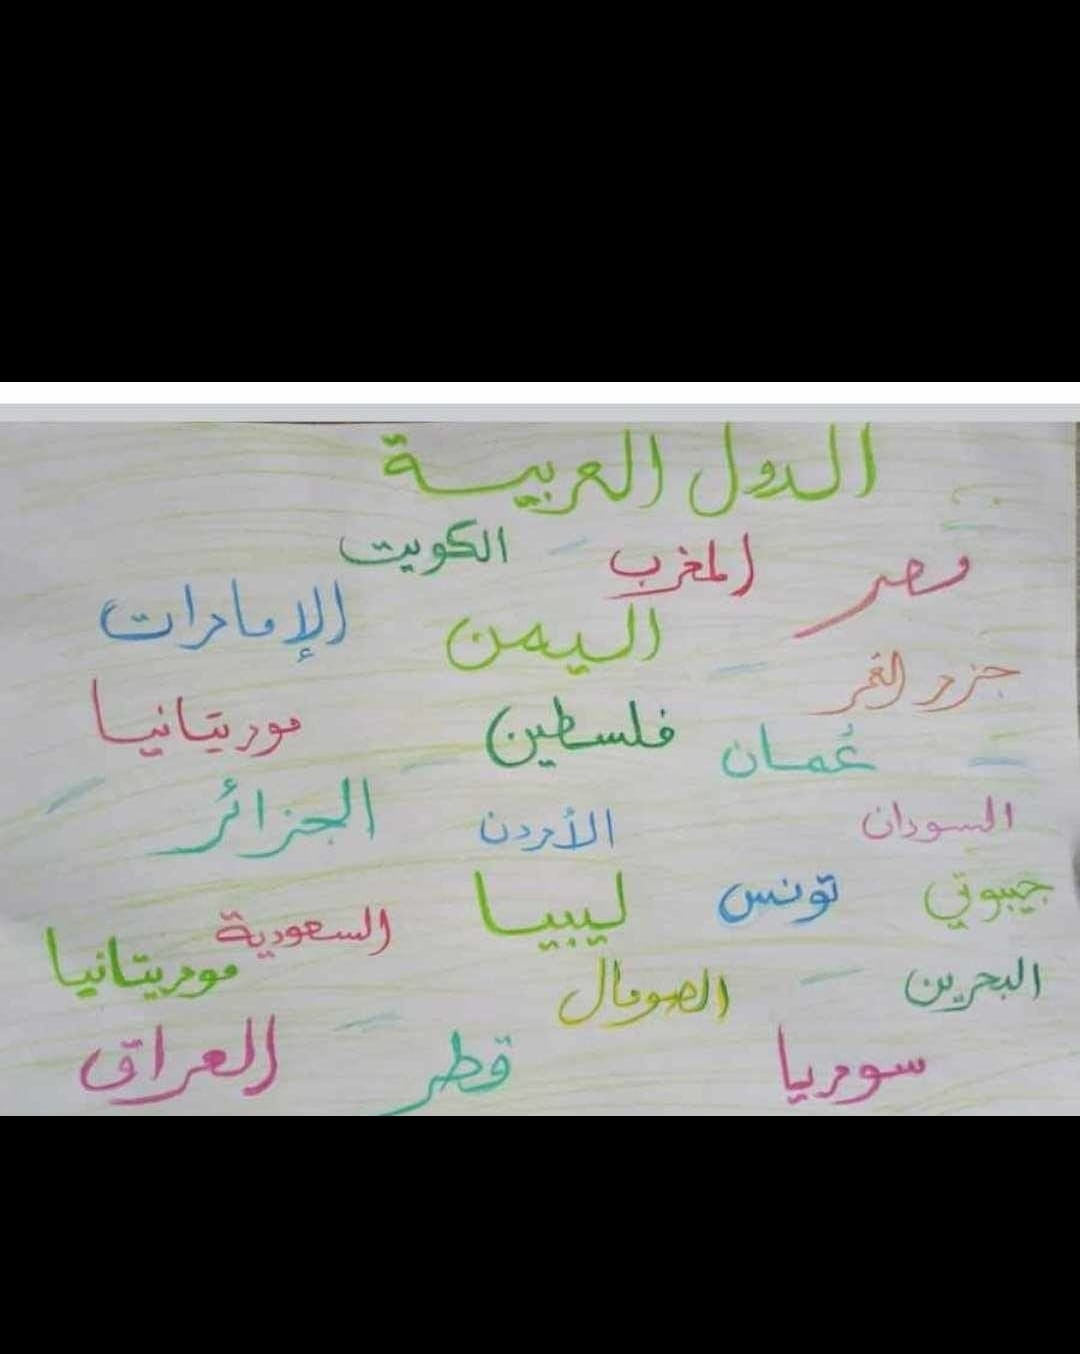 الدول العربية
مصر المغرب الكويت
اليمن الإمارات
جزر القمر
عُمان فلسطين موريتانيا
السودان الأردن الجزائر
جيبوتي تونس ليبيا السعودية
البحرين الصومال موريتانيا
سوريا قطر العراق